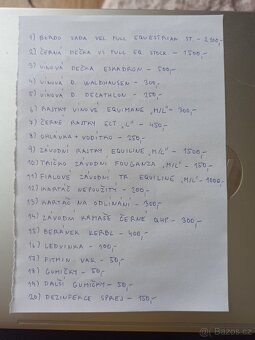 1) BORDO SADA VEL FULL EQUESTRIAN ST. - 2200,-
2) ČERNÁ DEČKA VS FULL EQ STOCK - 1500,-
3) VÍNOVÁ DEČKA ESKADRON - 500,-
4) VÍNOVÁ D. WALDHAUSEN - 300,-
5) VÍNOVÁ D. DECATHLON - 250,-
6) RAJTKY VÍNOVÉ EQUIMANE "M/L" - 300,-
7) ČERNÉ RAJTKY ELT "L" - 450,-
8) OHLÁVKA + VODÍTKO - 250,-
9) ZÁVODNÍ RAJTKY EQUILINE "M/L" - 1500,-
10) TRIČKO ZÁVODNÍ FOUGANZA "M/L" - 150,-
11) FIALOVÉ ZÁVODNÍ TR. EQUILINE "M/L" - 1000,-
12) KARTÁČ NEPOUŽITÝ - 200,-
13) KARTÁČ NA ODLÍNÁNÍ - 300,-
14) ZÁVODNÍ KAMAŠE ČERNÉ QHP - 300,-
15) BERÁNEK KERBL - 400,-
16) LEDVINKA - 100,-
17) FITMIN VAK - 50,-
18) GUMIČKY - 50,-
19) DALŠÍ GUMIČKY - 50,-
20) DEZINFEKCE SPREJ - 150,-
Bazoš.cz